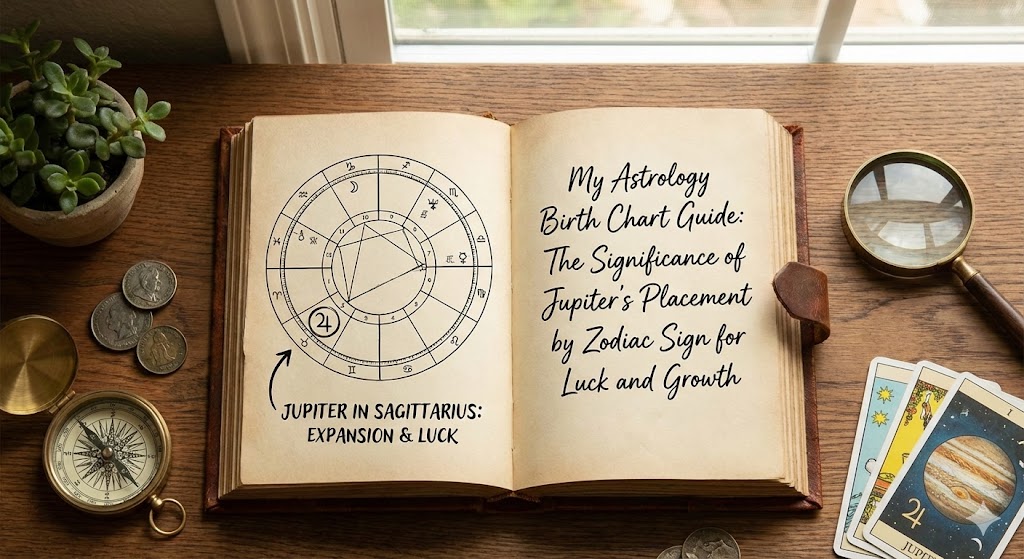 JUPITER IN SAGITTARIUS:
EXPANSION & LUCK
My Astrology
Birth Chart Guide:
The Significance of
Jupiter's Placement
by Zodiac Sign for
Luck and Growth
I